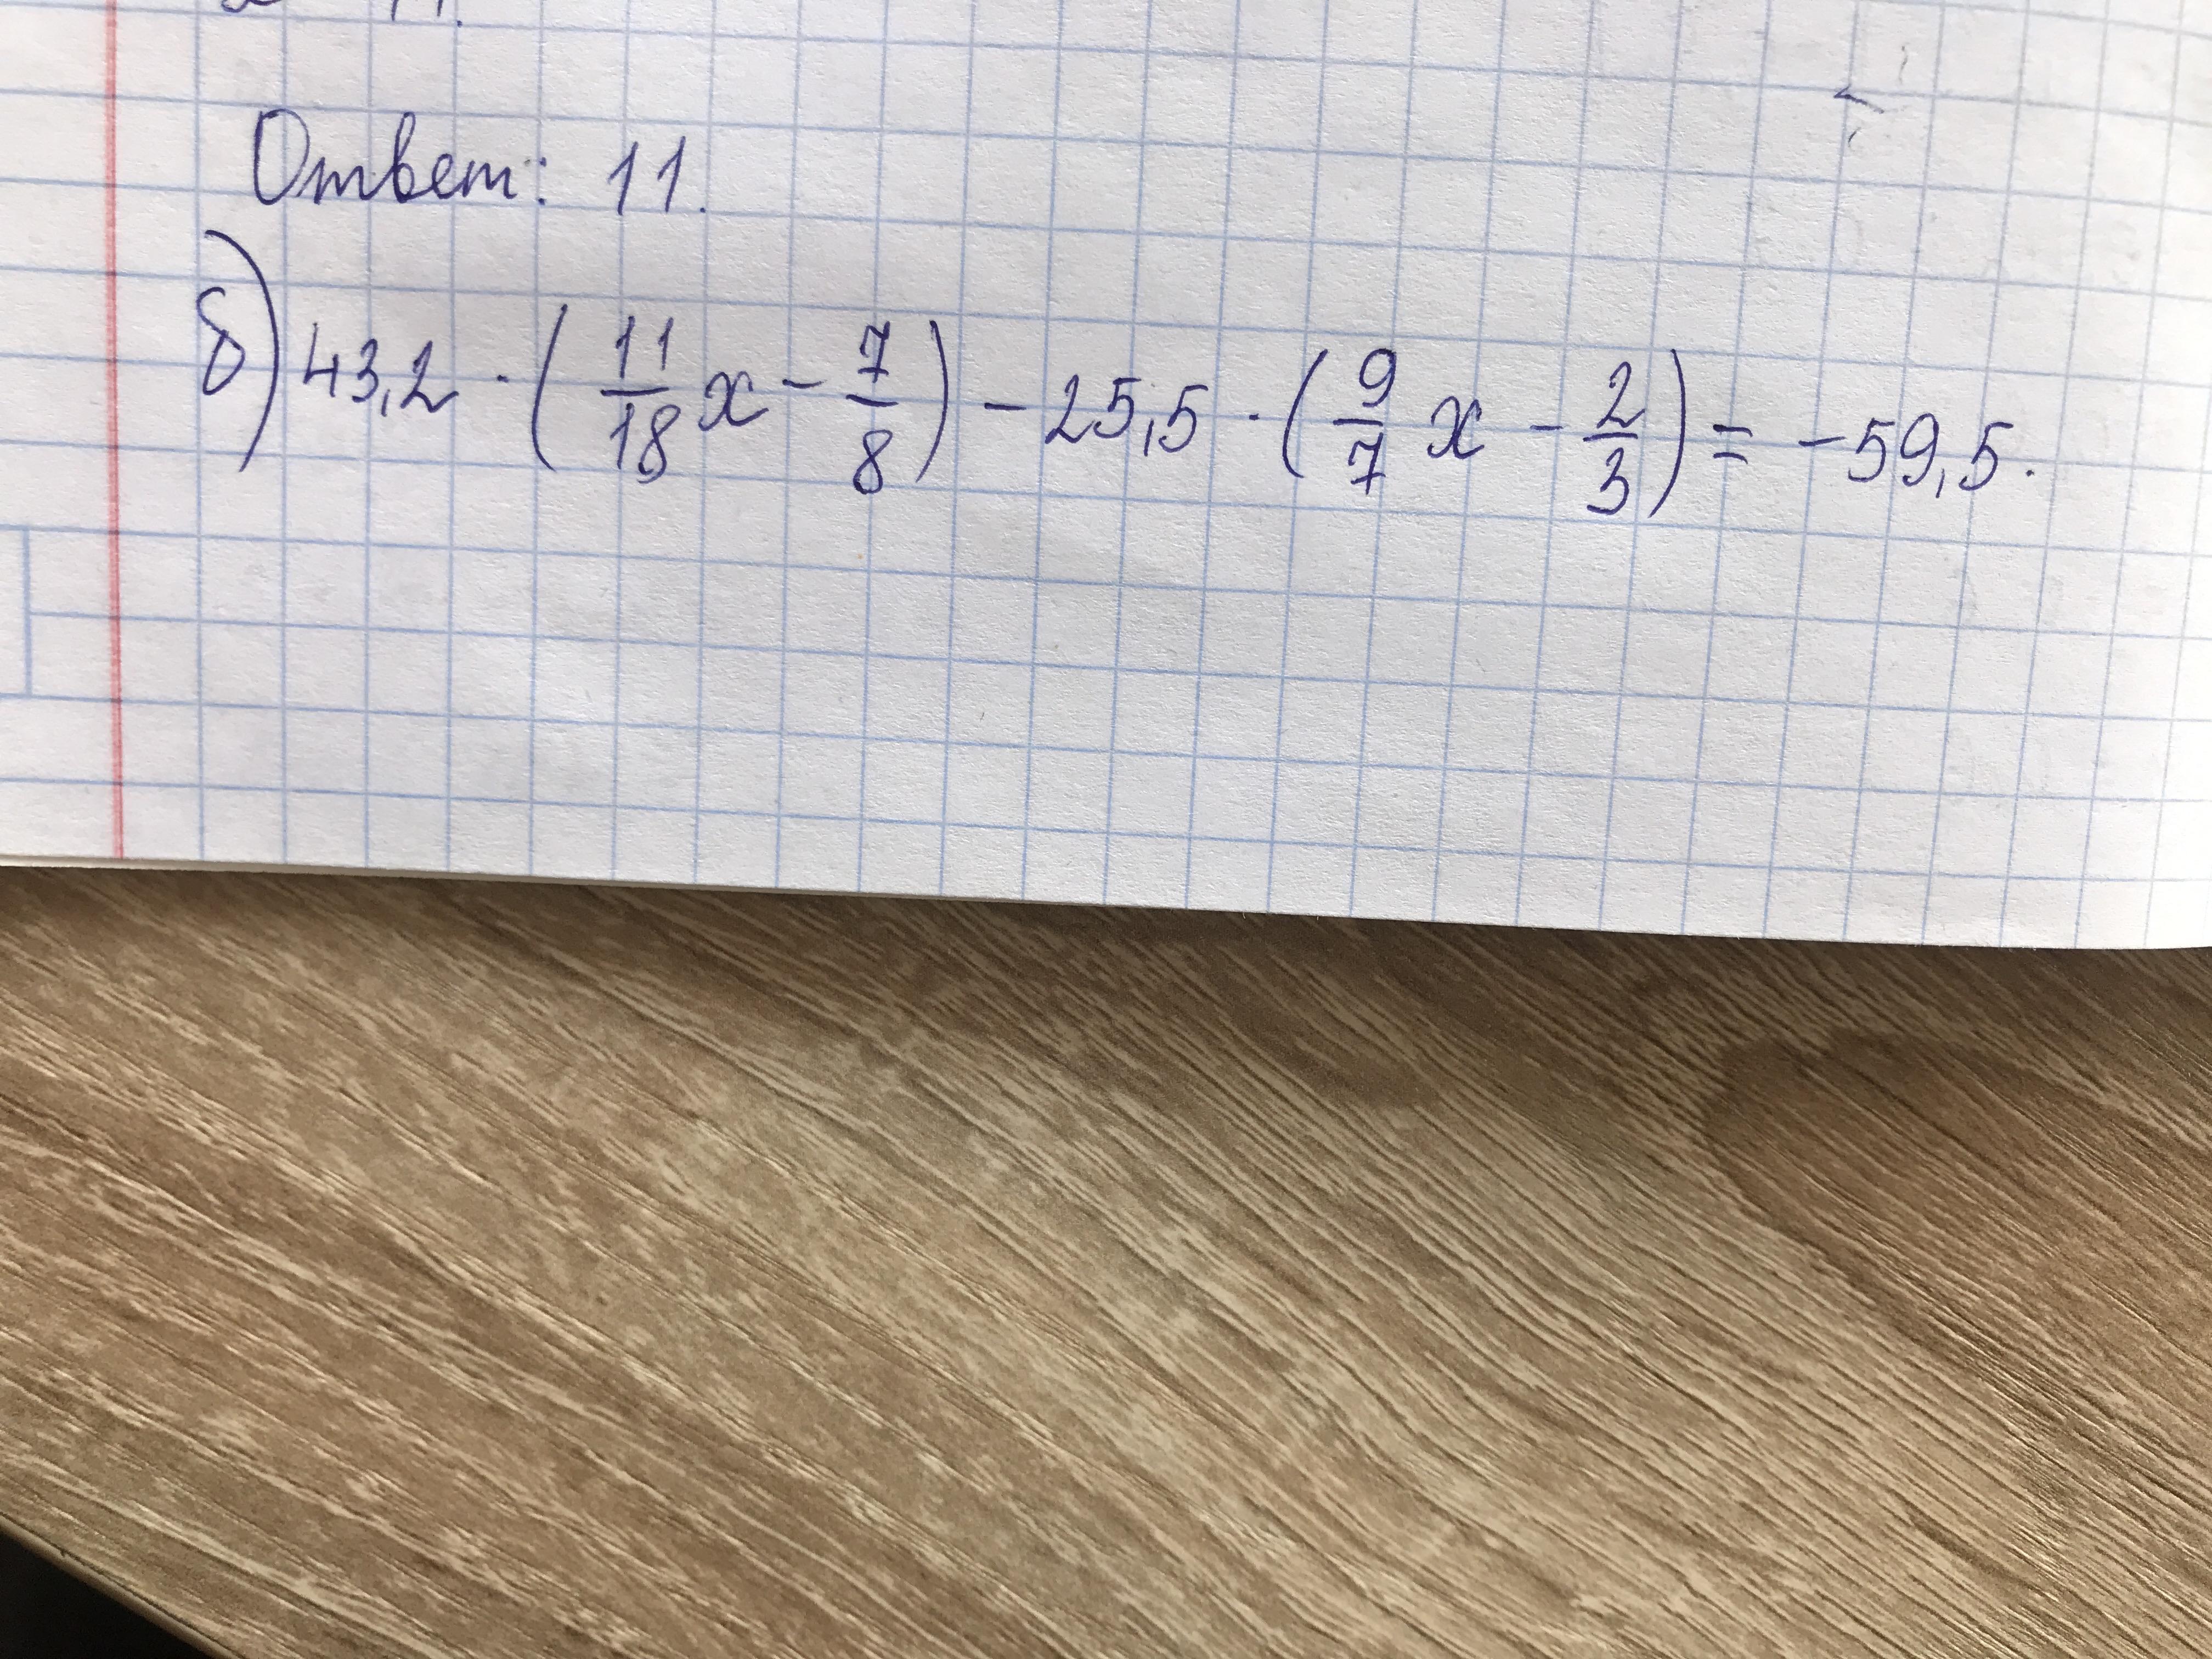 Ответ: 11.
б) 43,2 · (11/18 x - 7/8) - 25,5 · (9/7 x - 2/3) = -59,5.